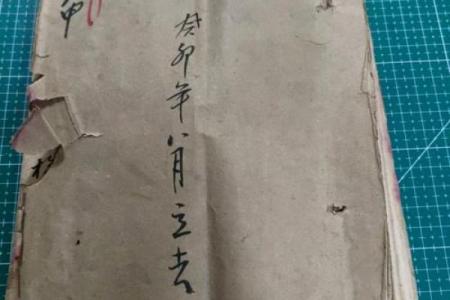 癸卯年八月立吉